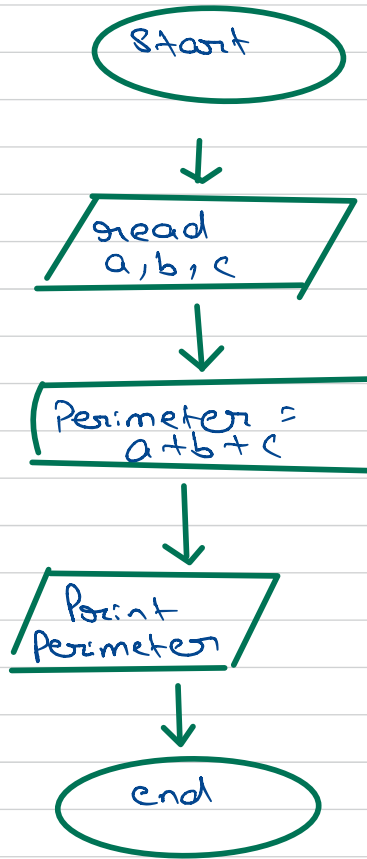 Start
read
a, b, c
Perimeter =
a+b+c
Print
Perimeter
end